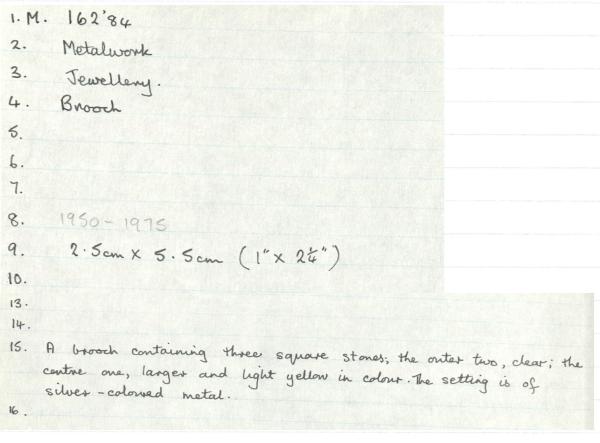 1. M. 162'84
2. Metalwork
3. Jewellery.
4. Brooch
5.
6.
7.
8. 1950 - 1975
9. 2.5cm x 5.5cm (1" x 2¼")
10.
13.
14.
15. A brooch containing three square stones; the outer two, clear; the
centre one, larger and light yellow in colour. The setting is of
silver-coloured metal.
16.